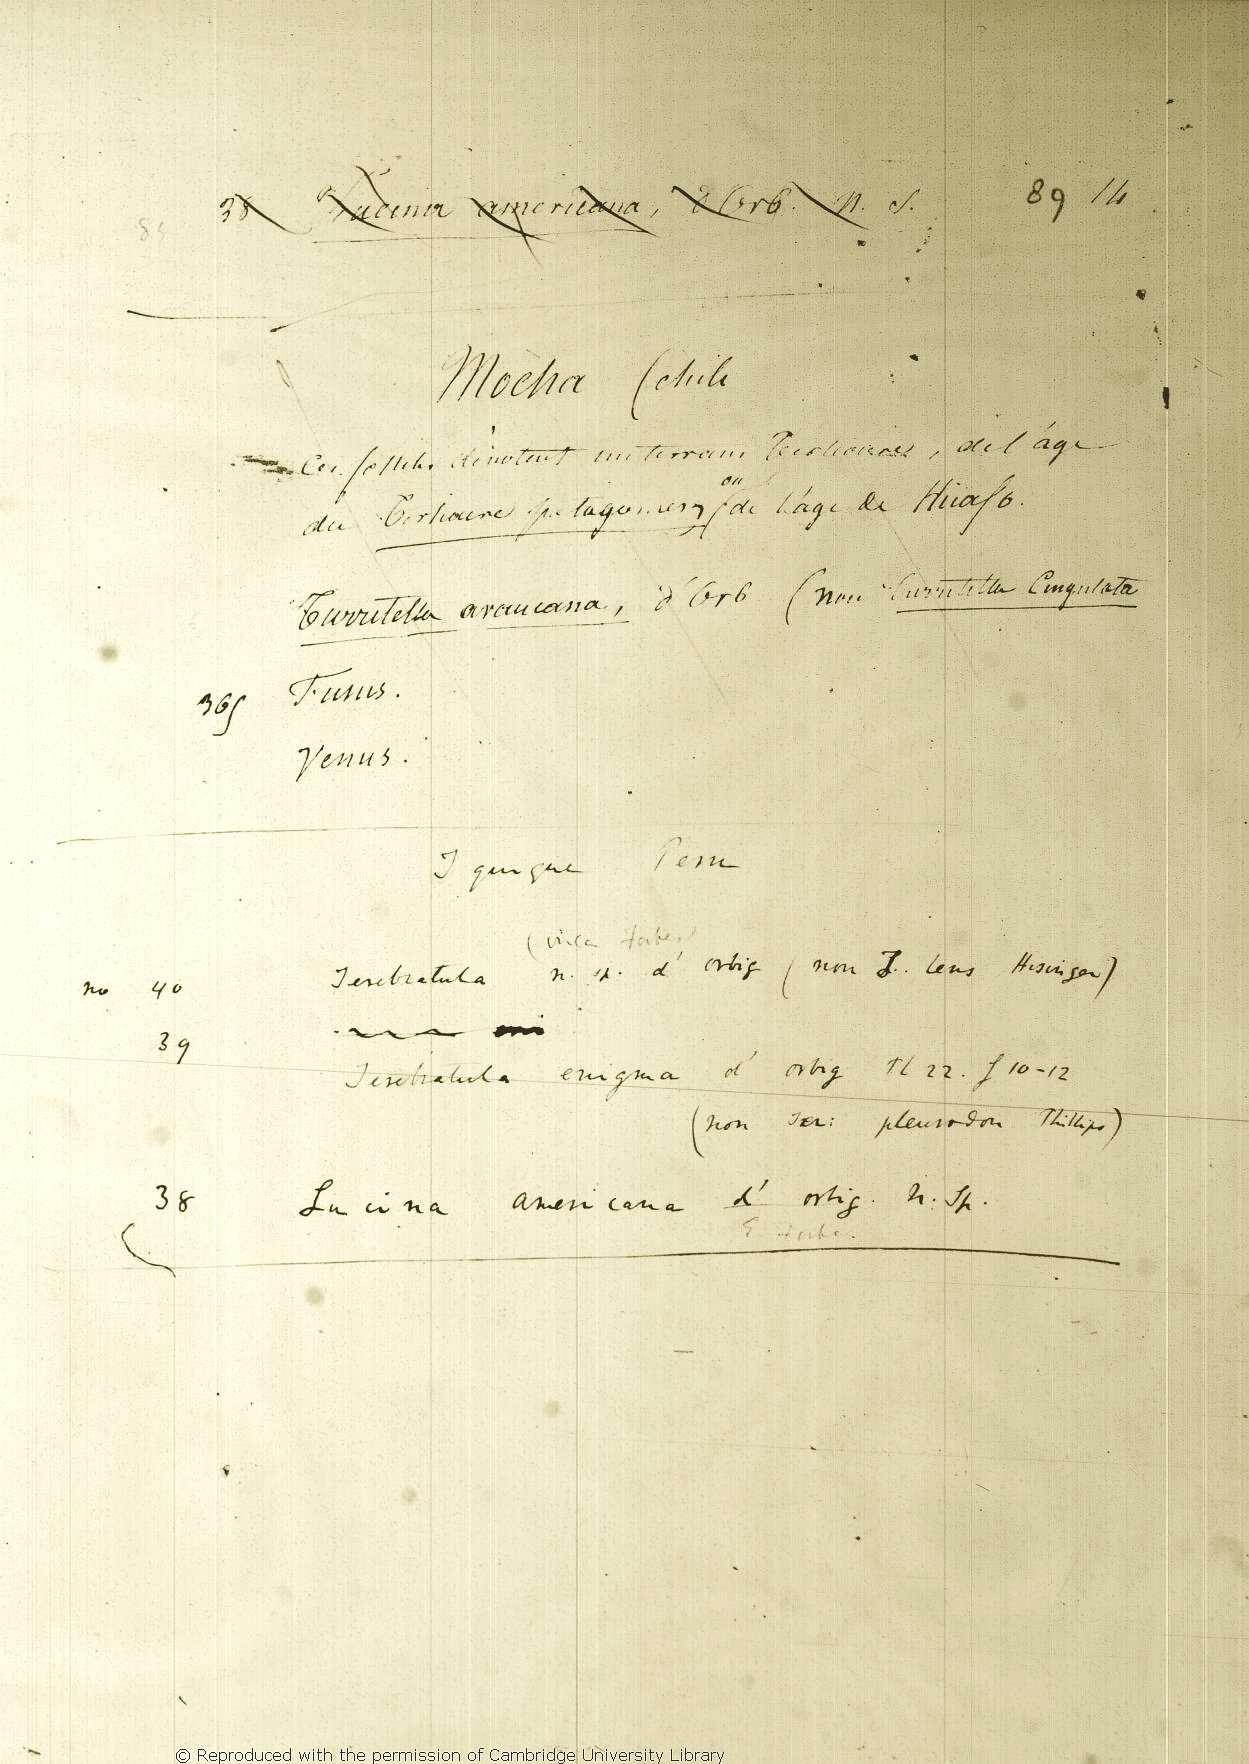 38 Lucina americana, d'Orb. N. S. 89 14
Mocha (Chili
Ces fossiles dénotent un terrain Tertiaire, de l'âge
du Tertiaire patagonien, ou (de l'âge de Huafo.
Turritella araucana, d'Orb (non Turritella Cingulata
Fusus.
365
Venus.
Iquique Peru
Forbes)
no 40 Terebratula n. sp. d'orbig (non T. lens Hisinger)
39
Terebratula enigma d'orbig Pl 22. f 10-12
(non Ter: pleurodon Phillips)
38 Lucina americana d'orbig. N. Sp.
E. Forbes.
© Reproduced with the permission of Cambridge University Library